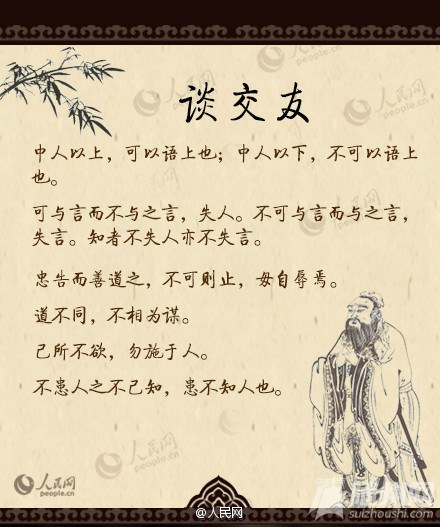 谈交友
中人以上，可以语上也；中人以下，不可以语上
也。
可与言而不与之言，失人。不可与言而与之言，
失言。知者不失人亦不失言。
忠告而善道之，不可则止，毋自辱焉。
道不同，不相为谋。
己所不欲，勿施于人。
不患人之不己知，患不知人也。
人民网
people.cn
@人民网
suizhoushi.com